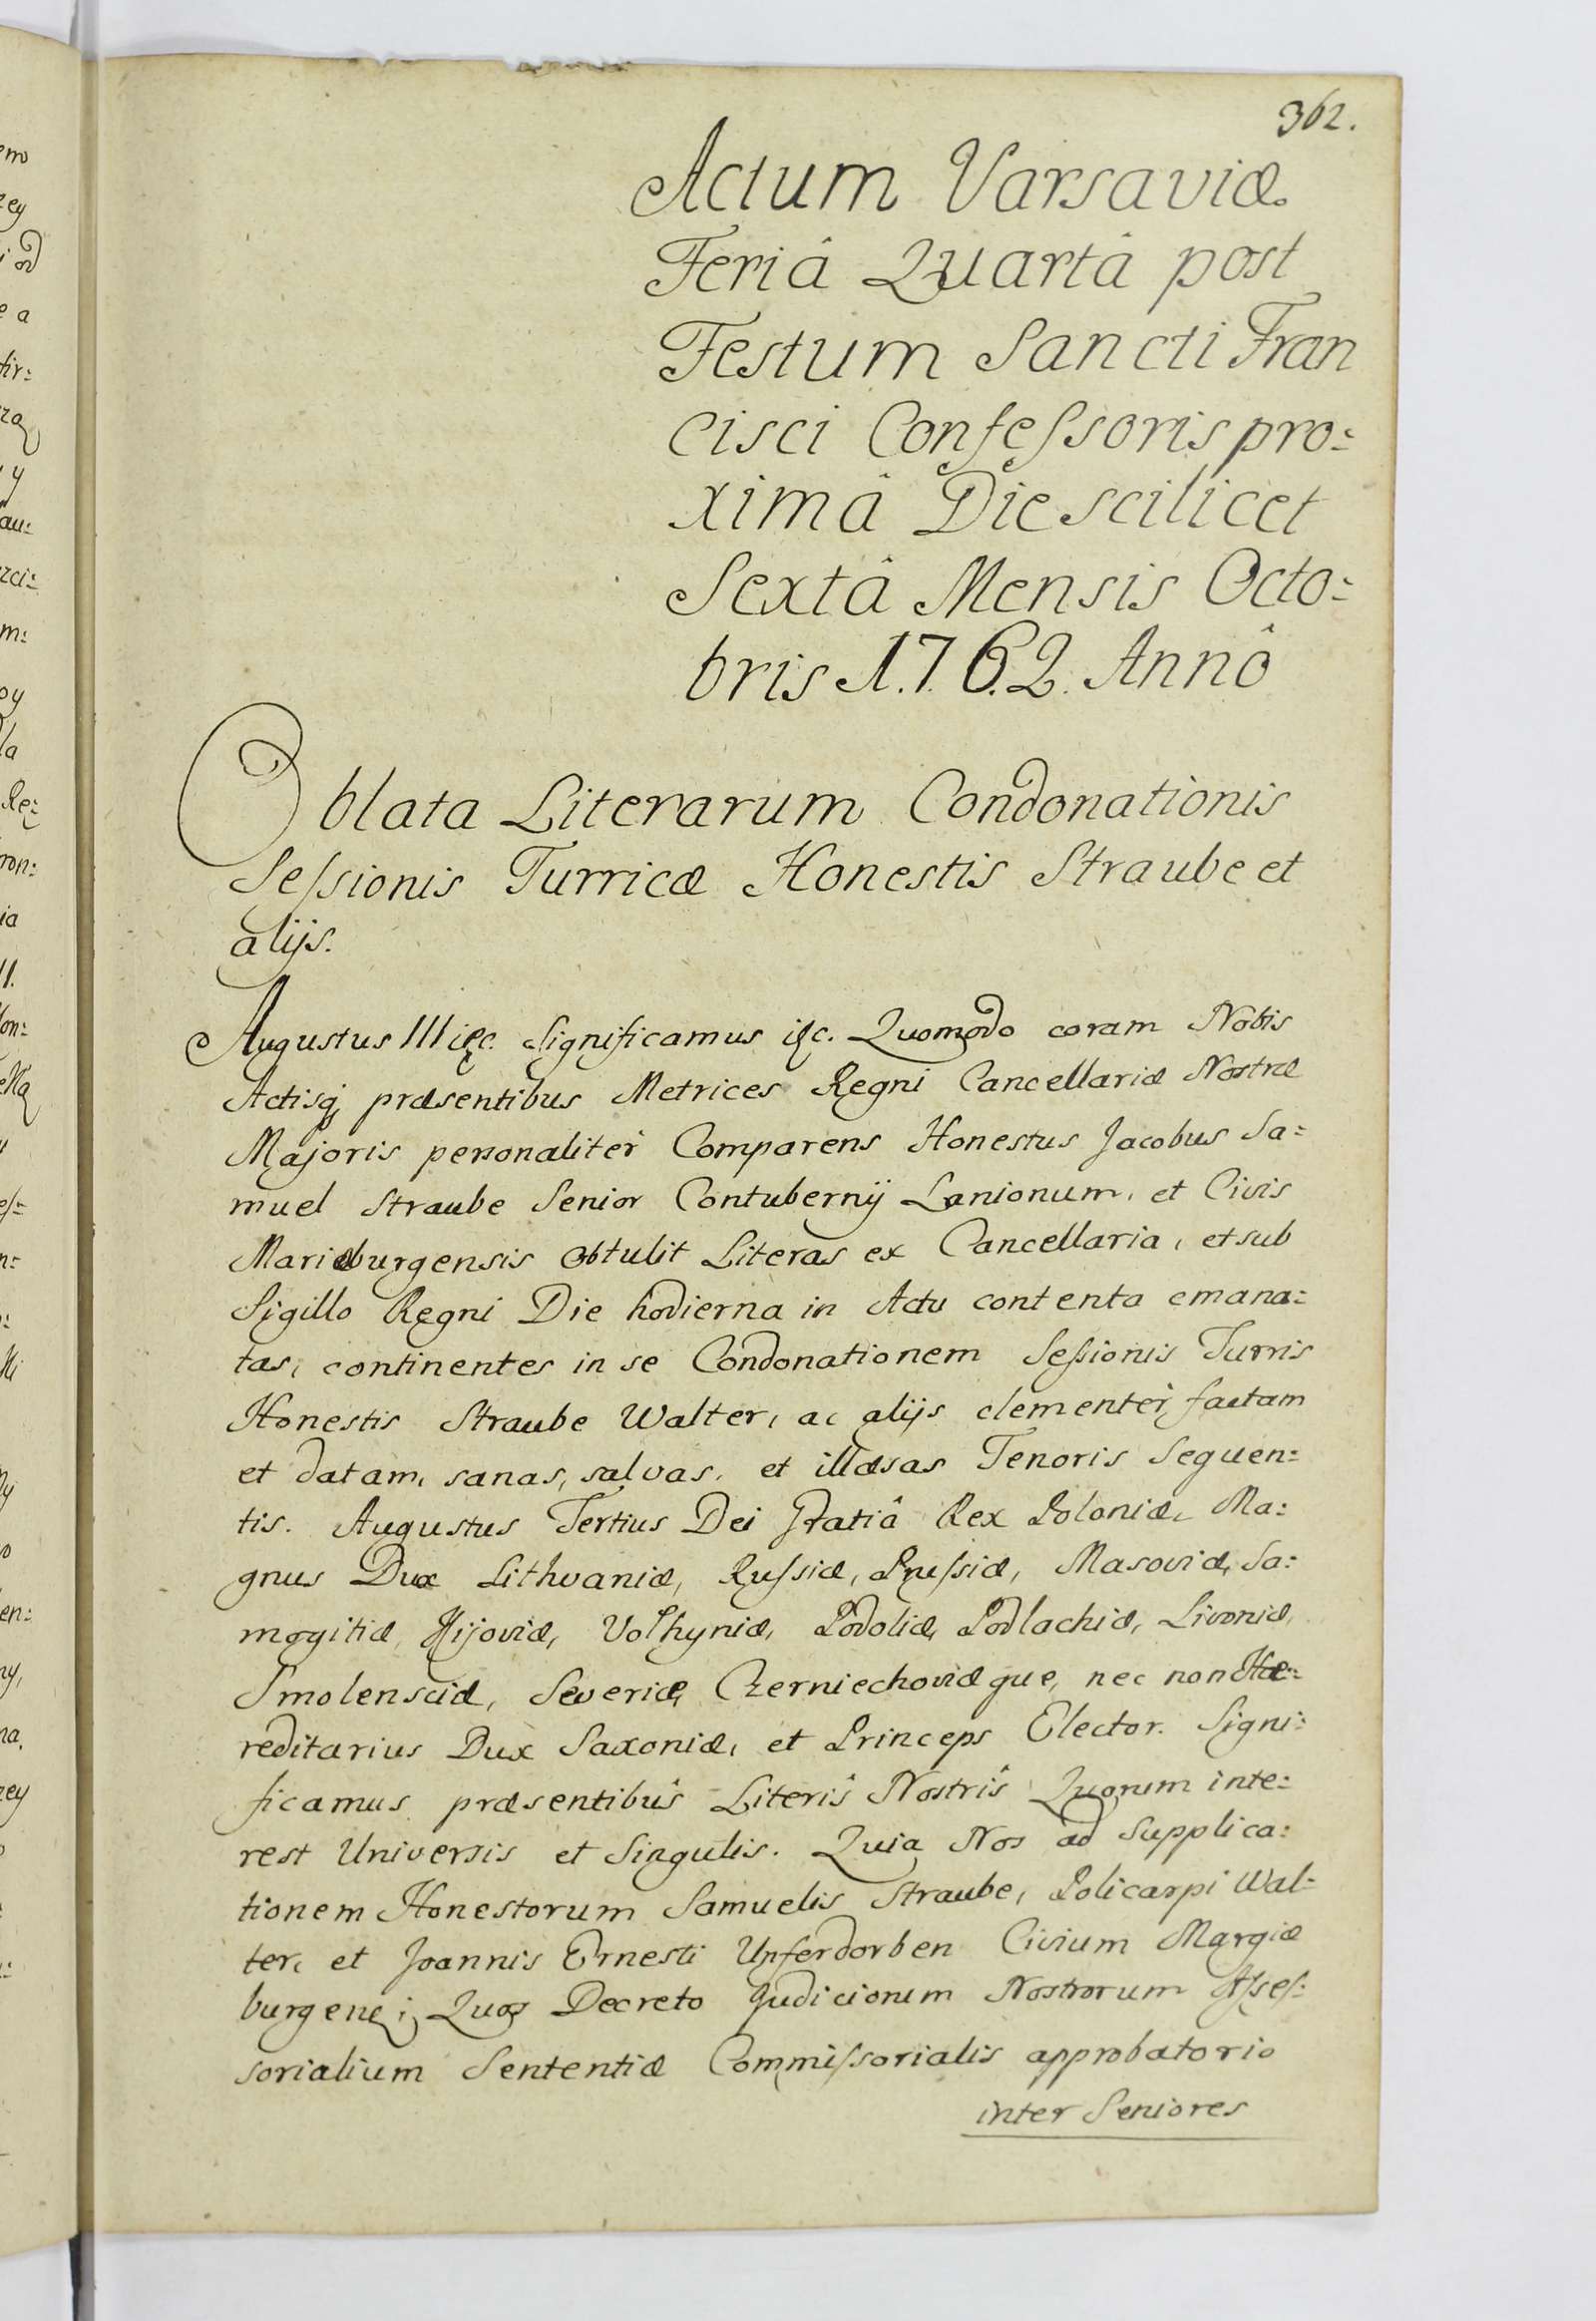 362.
Actum Varsaviæ.
Feriâ Quartâ post
Festum Sancti Fran
cisci Confessoris pro=
ximâ Die scilicet
Sextâ Mensis Octo=
bris 1.7.6.2. Annô
Oblata Literarum Condonationis
Sessionis Turricæ Honestis Straube et
alijs.
Augustus III etc. Significamus etc. Quomodo coram Nobis
Actisq præsentibus Metrices Regni Cancellariæ Nostræ
Majoris personaliter Comparens Honestus Jacobus Sa=
muel Straube Senior Contubernij Lanionum, et Civis
Mariæburgensis Obtulit Literas ex Cancellaria, et sub
Sigillo Regni Die hodierna in Actu contenta emana=
tas, continentes in se Condonationem Sessionis Turris
Honestis Straube Walter, ac alijs clementèr factam
et datam, sanas, salvas, et illæsas Tenoris Sequen=
tis. Augustus Tertius Dei Gratiâ Rex Poloniæ, Ma=
gnus Dux Lithvaniæ, Russiæ, Prussiæ, Masoviæ, Sa=
mogitiæ, Kijoviæ, Volhyniæ, Podoliæ, Podlachiæ, Livoniæ,
Smolensciæ, Severiæ, Czerniechoviæque, nec non Hæ=
reditarius Dux Saxoniæ, et Princeps Elector. Signi=
ficamus præsentibûs Literîs Nostrîs Quorum inte=
rest Universis et Singulis. Quia Nos ad Supplica=
tionem Honestorum Samuelis Straube, Policarpi Wal=
ter, et Joannis Ernesti Unferdorben Civium Margiæ
burgen; Quos Decreto Judiciorum Nostrorum Asses=
sorialium Sententiæ Commissorialis approbatorio
inter Seniores